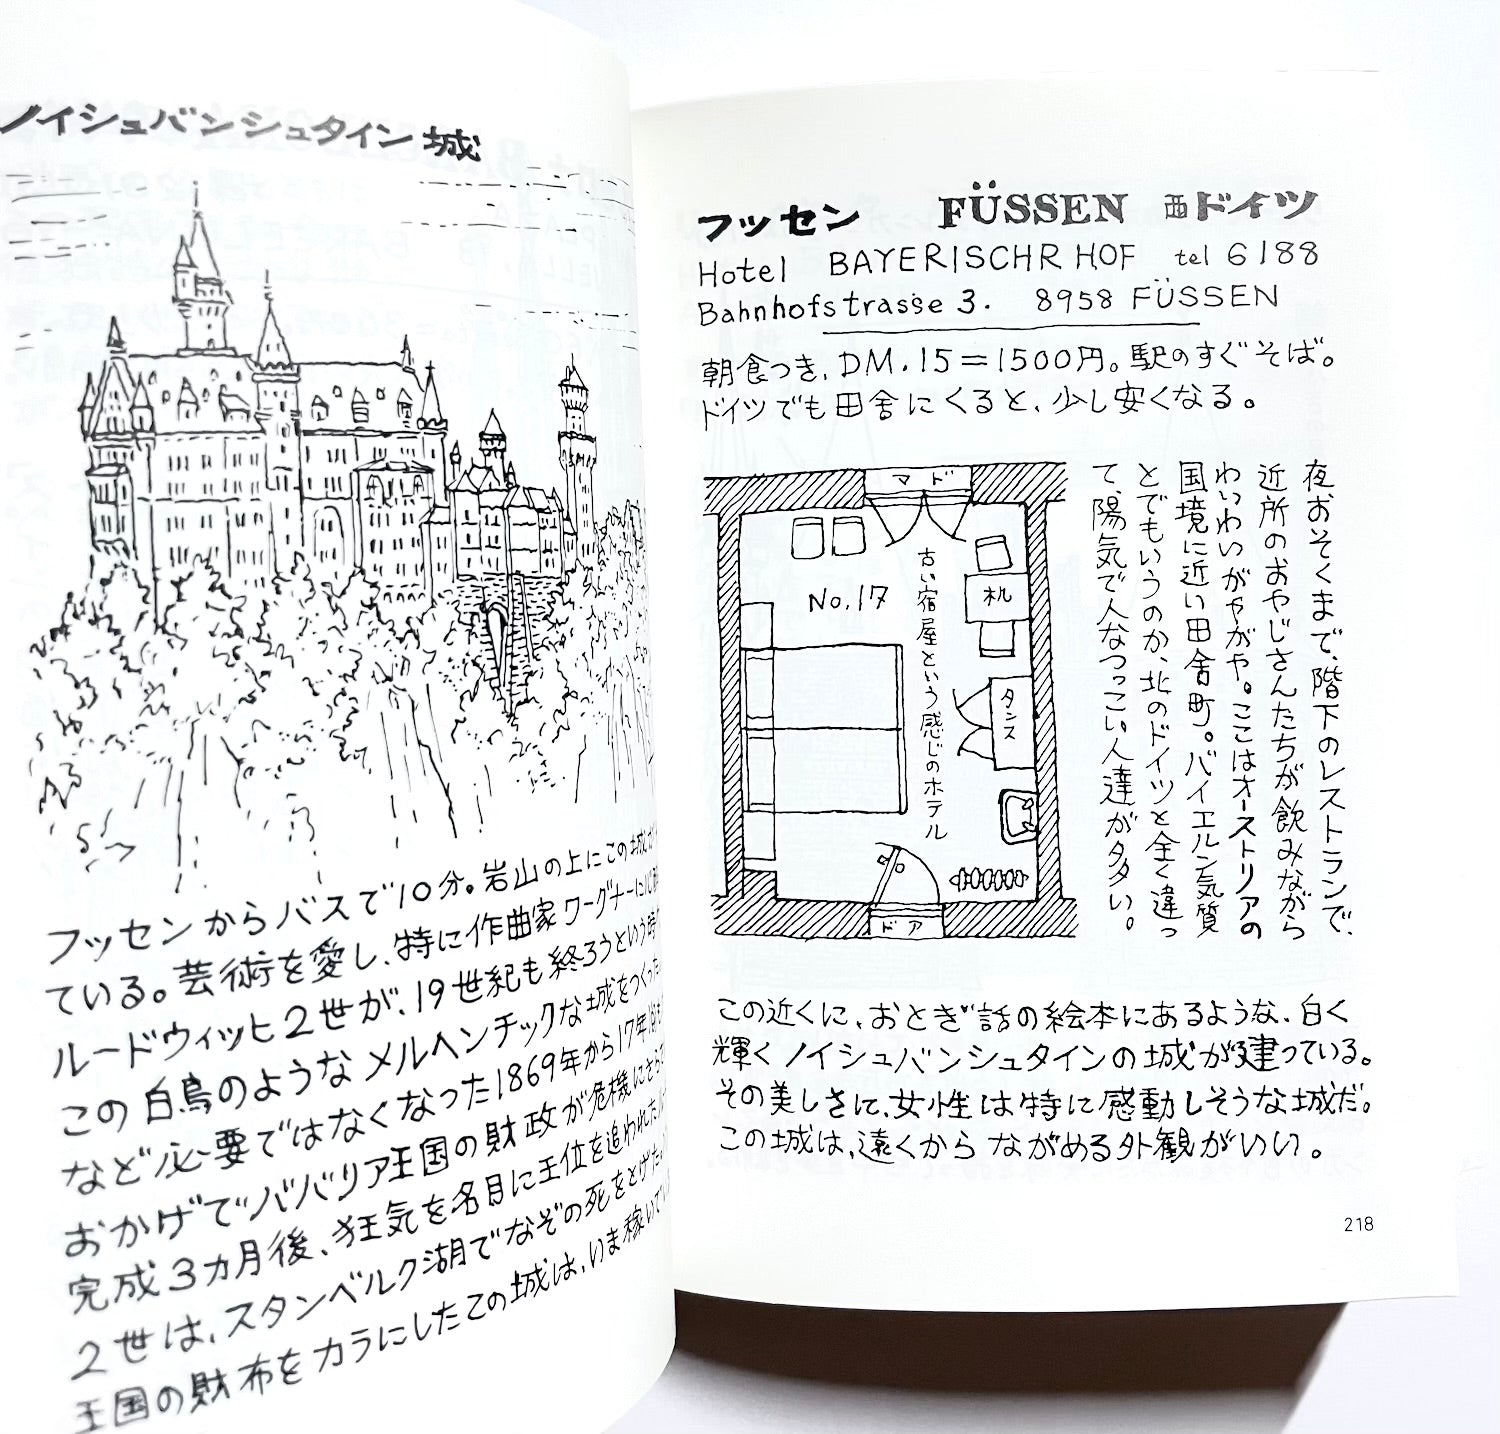 ノイシュバンシュタイン城
フッセンからバスで10分。岩山の上にこの城が
ている。芸術を愛し、特に作曲家ワーグナーに
ルードウィッヒ2世が、19世紀も終ろうという時
この白鳥のようなメルヘンチックな城をつくった
など必要ではなくなった1869年から17年
おかげでババリア王国の財政が危機にさら
完成3カ月後、狂気を名目に王位を追われた
2世は、スタンベルク湖でなぞの死をとげた
王国の財布をカラにしたこの城は、いま稼いで
フッセン FÜSSEN 西ドイツ
Hotel BAYERISCHR HOF tel 6188
Bahnhofstrasse 3. 8958 FÜSSEN
朝食つき、DM.15=1500円。駅のすぐそば。
ドイツでも田舎にくると、少し安くなる。
マド
No.17
古い宿屋という感じのホテル
机
タンス
ドア
夜おそくまで、階下のレストランで、
近所のおやじさんたちが飲みながら
わいわいがやがや。ここはオーストリアの
国境に近い田舎町。バイエルン気質
とでもいうのか、北のドイツと全く違っ
て、陽気で人なつっこい人達が多い。
この近くに、おとぎ話の絵本にあるような、白く
輝くノイシュバンシュタインの城が建っている。
その美しさに、女性は特に感動しそうな城だ。
この城は、遠くからながめる外観がいい。
218